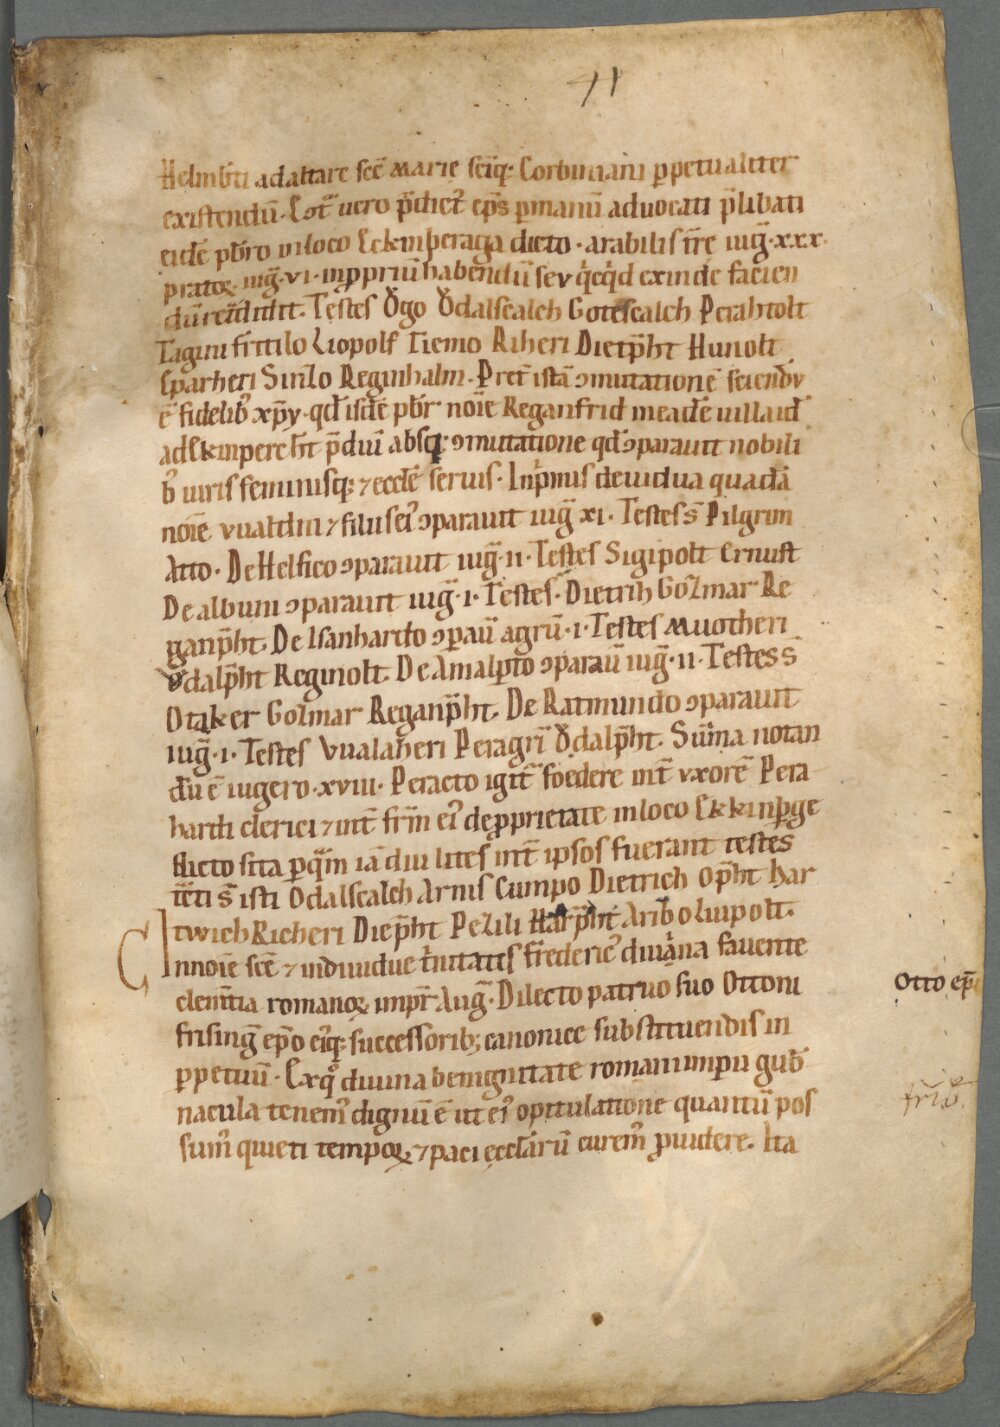 41
Helmb̄ti ad altare scē Marie sc̄iq; Corbiniani ꝑpetualiter
existendū. Eͻt̄ uero p̄dict᷒ ep̄s ꝑ manū aduocati p̄libati
eidē pb̄ro in loco Eckinperaga dicto · arabilis tr̄e iug̃ · xxx ·
pratoꝝ iug̃ · vi · in ꝓpriū habendū sev qͥcqͥd exinde facien
dū reddidit. Testes Ǒgo Ǒdalscalch Gotescalch Perahtolt
Tagini frittilo Liopolf Tiemo Riheri Dietp̄ht Hunolt
Eparheri Sinzo Reginhalm. Pret̄ istā ͻmutationē sciendv
ē fidelib᷒ xp̄y · qd̄ isdē pb̄r noīe Reganfrid in eadē uilla id
ad Ekinpere h̄t p̄diū absq; ͻmutatione qd̄ ͻparauit nobili
b᷒ uiris feminisq; ⁊ eccl̄ę seruis. Inpͥmis de uidua quadā
noīe vualdin ⁊ filiis ei᷒ ͻparauit iug̃ xi · Testes s̄ Pilgrim
Atto · De Helfico ͻparauit iug̃ · ii · Testes Sigipolt Ernust
De albuni ͻparauit iug̃ · i · Testes · Dietrih Gozmar Re
ganp̄ht. De Isanhardo ͻparau᷒ agrū · i · Testes Muotheri
Ǒdalp̄ht Reginolt. De Amalpto ͻparau᷒ iug̃ · ii · Testes s
Otaker Gozmar Reganp̄ht. De Ratmundo ͻparauit
iug̃ · i · Testes Vualaheri Peragrī Ǒdalp̄ht. Sum̄a notan
dū ē iugero · xviii · Peracto igit᷒ foedere int̄ vxorē Pera
hardi clerici ⁊ int̄ fr̄m ei᷒ de ꝓprietate in loco Ekkinꝑge
dicto sita ꝑ quā iā diu lites int̄ ipsos fuerant testes
tr̄ti s̄ isti Odalscalch Arnis Cumpo Dietrich Op̄ht Har
twich Richeri Diep̄ht Pezili Harp̄ht Aribo Liupolt.
C Innoīe scē ⁊ indiuidue tͥnitatis frederic᷒ diuina fauente
clem̄tia romanoꝝ impr̄ Aug̃. Dilecto patruo suo Ottoni
frising̃ ep̄o ei᷒q; successorib; canonice substituendis in
ꝑpetuū. Ex qͦ diuina benignitate romani imperii gub̄
nacula tenem᷒ dignū ē ut ei᷒ opitulatione quantū pos
sum᷒ quieti tempoꝝ ⁊ paci eccl̄iarū curem᷒ ꝓuidere. Ita
Otto ep̄c